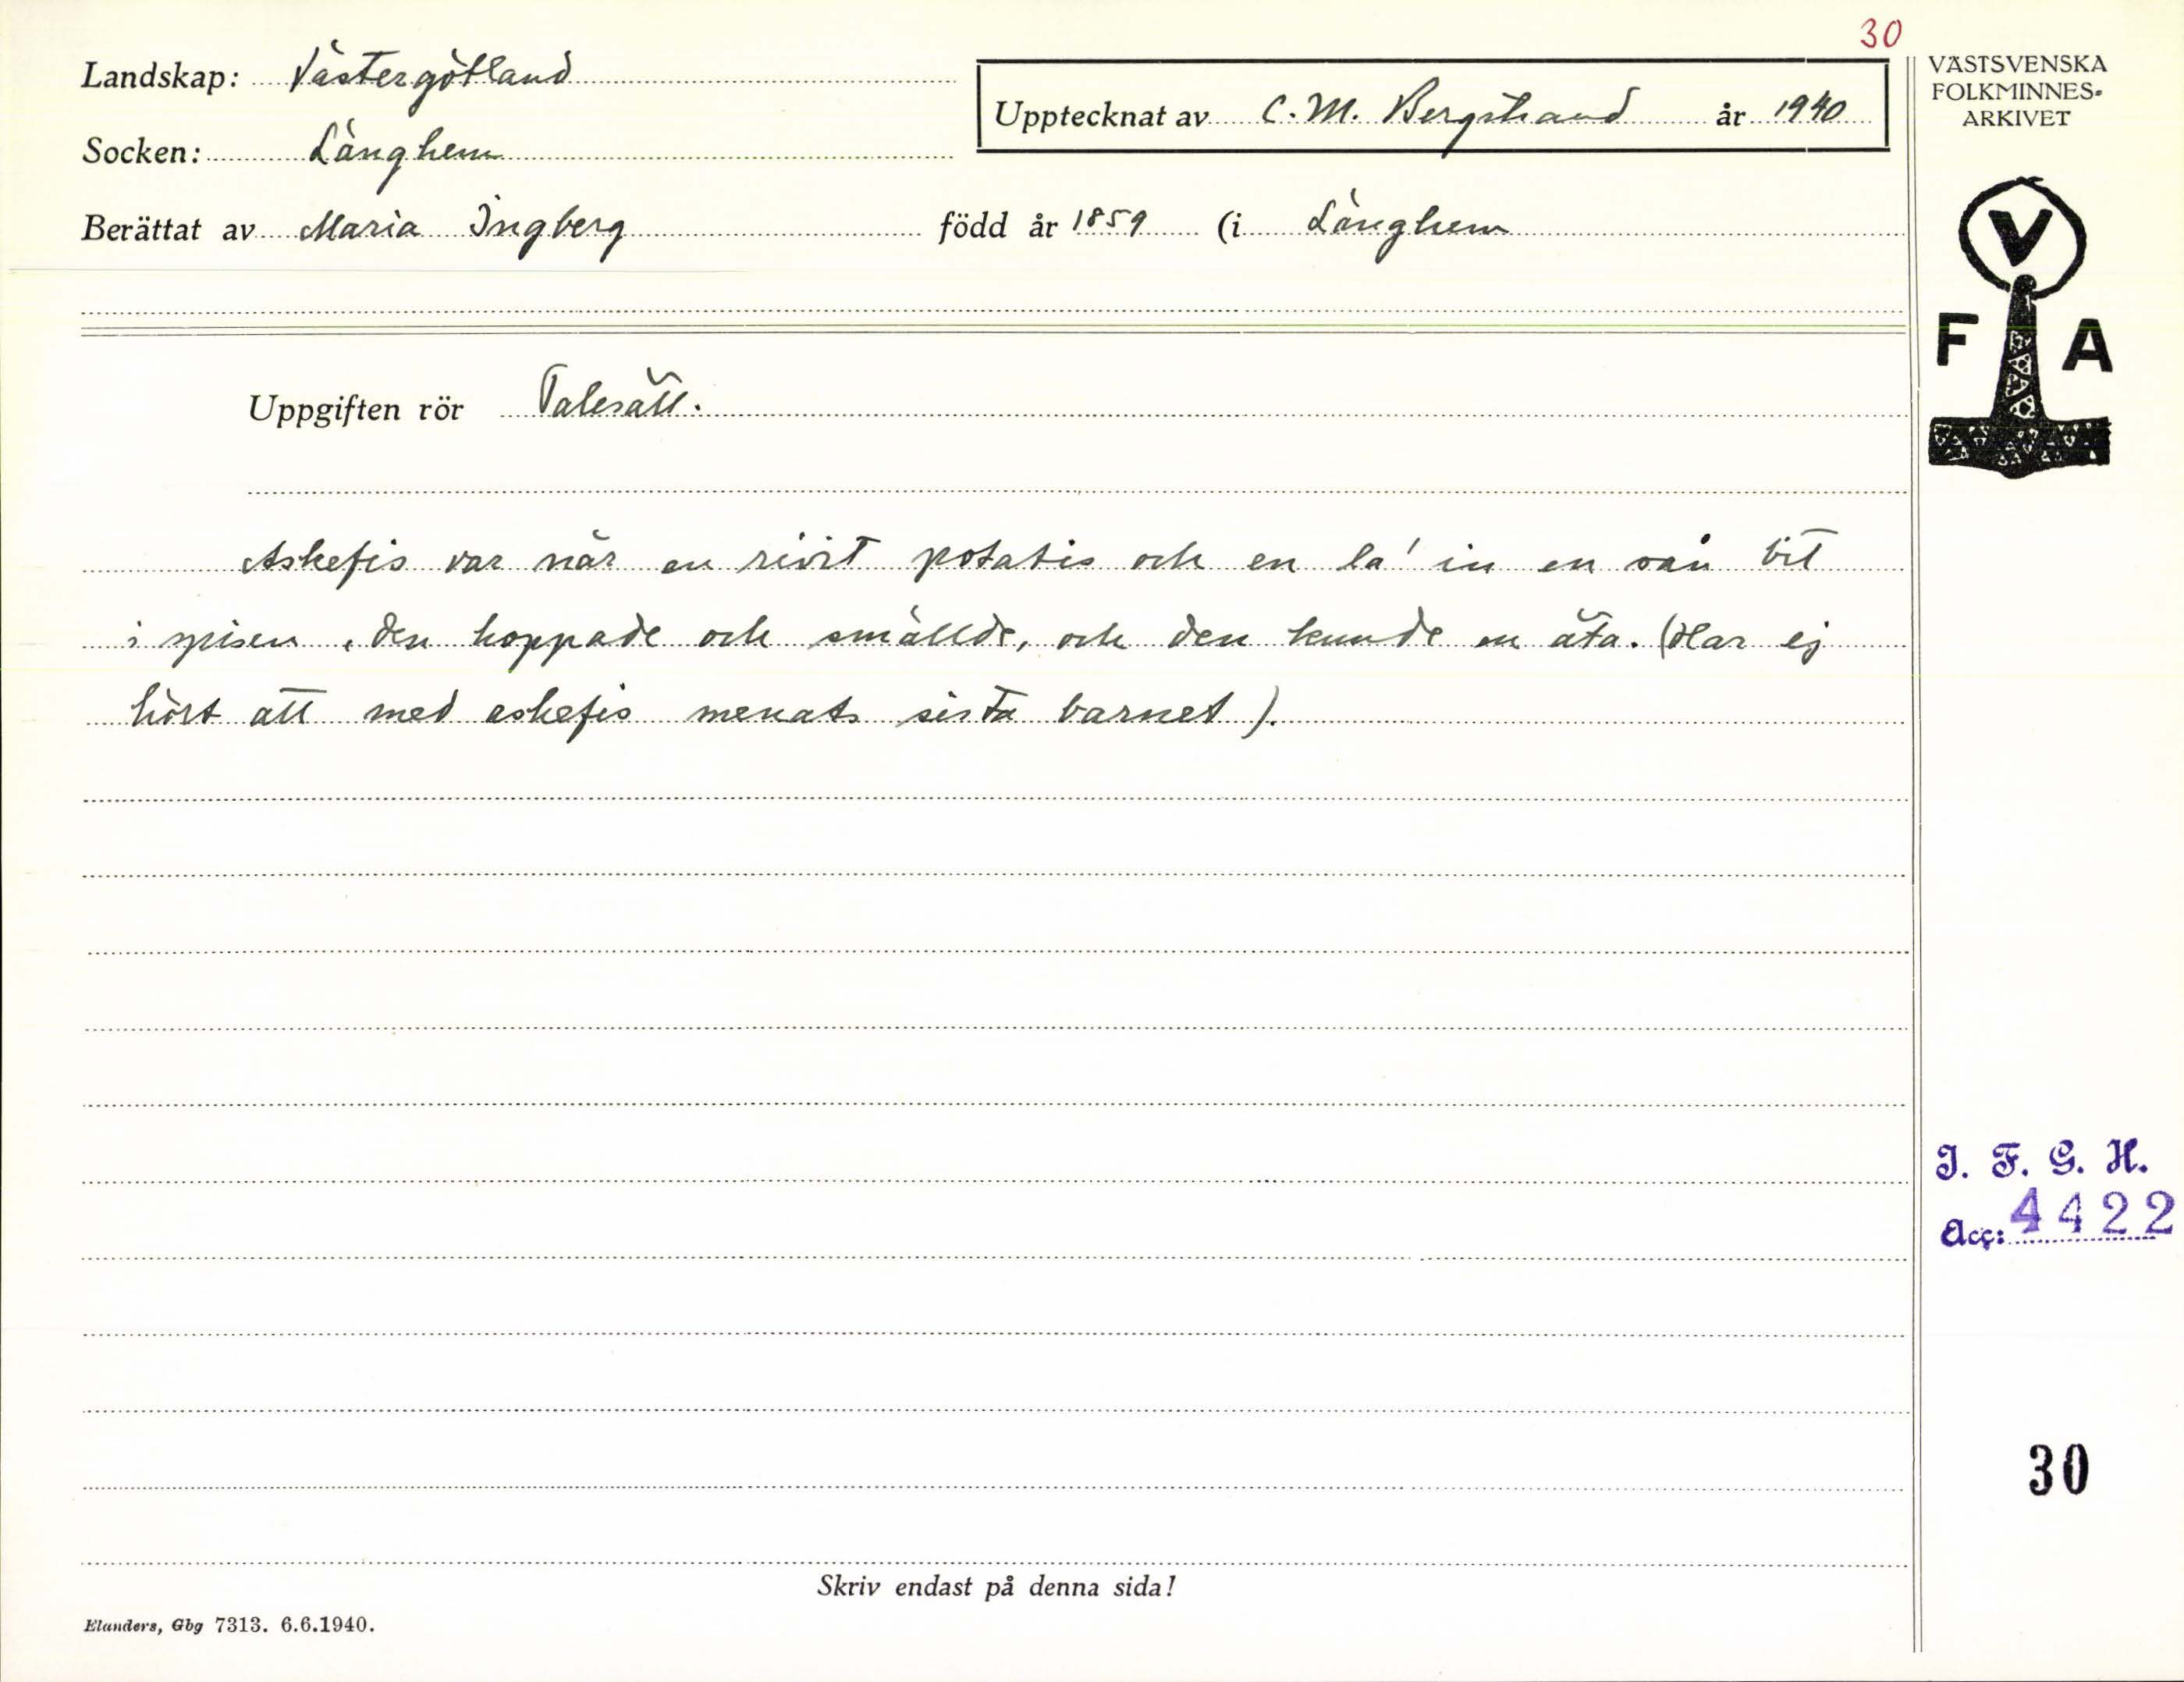 30
Landskap: Västergötland
Upptecknat av C. M. Bergstrand år 1940
Socken: Länghem
Berättat av Maria Ingberg född år 1859 (i Länghem
VÄSTSVENSKA
FOLKMINNES-
ARKIVET
V
F A
Uppgiften rör Talesätt.
Askefis var när en rivit potatis och en la' in en sån bit
i spisen, den hoppade och smällde, och den kunde en äta. (Har ej
hört att med askefis menats sista barnet).
I. F. G. H.
Acc: 4422
30
Skriv endast på denna sida!
Elanders, Gbg 7313. 6.6.1940.